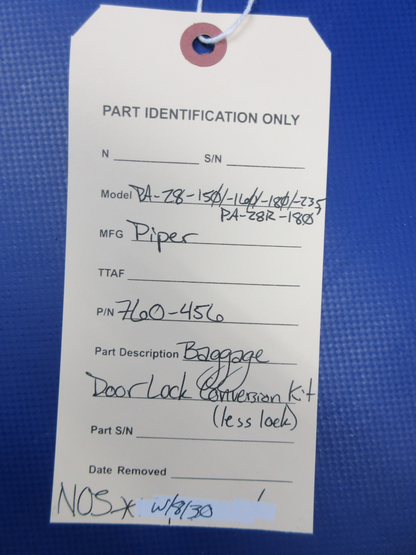 PART IDENTIFICATION ONLY
N S/N
Model PA-28-150/-160/-180/-235
PA-28R-180
MFG Piper
TTAF
P/N 760-456
Part Description Baggage
Door Lock Conversion Kit
(less lock)
Part S/N
Date Removed
NOS* W/8/30